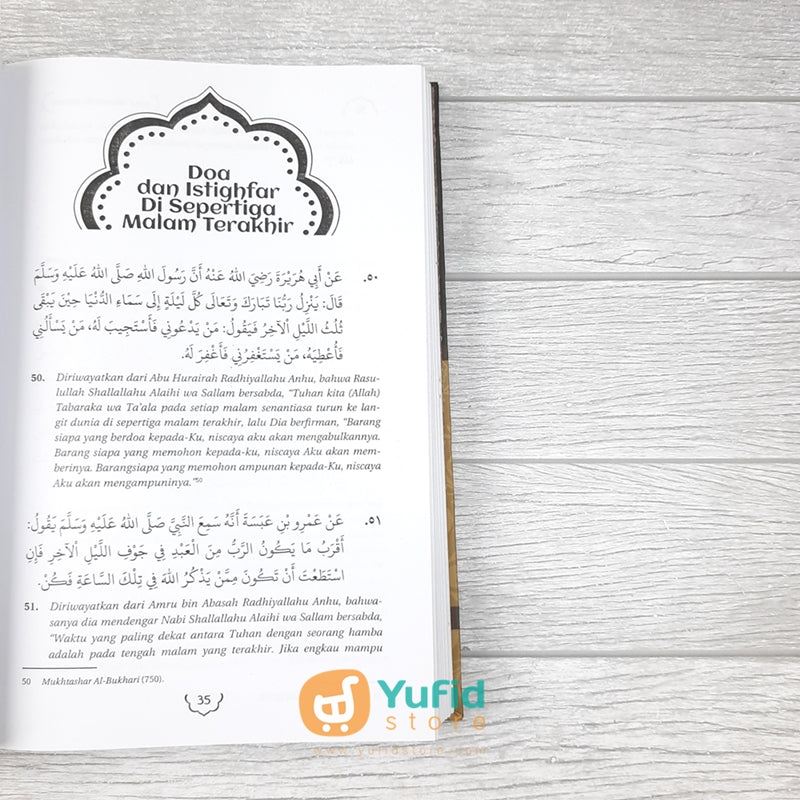 Doa
dan Istighfar
Di Sepertiga
Malam Terakhir
٥٠. عَنْ أَبِي هُرَيْرَةَ رَضِيَ اللهُ عَنْهُ أَنَّ رَسُولَ اللهِ صَلَّى اللهُ عَلَيْهِ وَسَلَّمَ
قَالَ: يَنْزِلُ رَبُّنَا تَبَارَكَ وَتَعَالَى كُلَّ لَيْلَةٍ إِلَى سَمَاءِ الدُّنْيَا حِيْنَ يَبْقَى
ثُلُثُ اللَّيْلِ الْآخِرُ فَيَقُولُ: مَنْ يَدْعُونِي فَأَسْتَجِيبَ لَهُ، مَنْ يَسْأَلُنِي
فَأُعْطِيَهُ، مَنْ يَسْتَغْفِرُنِي فَأَغْفِرَ لَهُ.
50. Diriwayatkan dari Abu Hurairah Radhiyallahu Anhu, bahwa Rasu-
lullah Shallallahu Alaihi wa Sallam bersabda, "Tuhan kita (Allah)
Tabaraka wa Ta'ala pada setiap malam senantiasa turun ke lan-
git dunia di sepertiga malam terakhir, lalu Dia berfirman, "Barang
siapa yang berdoa kepada-Ku, niscaya aku akan mengabulkannya.
Barang siapa yang memohon kepada-ku, niscaya Aku akan mem-
berinya. Barangsiapa yang memohon ampunan kepada-Ku, niscaya
Aku akan mengampuninya."50
٥١. عَنْ عَمْرِو بْنِ عَبَسَةَ أَنَّهُ سَمِعَ النَّبِيَّ صَلَّى اللهُ عَلَيْهِ وَسَلَّمَ يَقُولُ:
أَقْرَبُ مَا يَكُونُ الرَّبُّ مِنَ الْعَبْدِ فِي جَوْفِ اللَّيْلِ الْآخِرِ فَإِنِ
اسْتَطَعْتَ أَنْ تَكُونَ مِمَّنْ يَذْكُرُ اللهَ فِي تِلْكَ السَّاعَةِ فَكُنْ.
51. Diriwayatkan dari Amru bin Abasah Radhiyallahu Anhu, bahwa-
sanya dia mendengar Nabi Shallallahu Alaihi wa Sallam bersabda,
"Waktu yang paling dekat antara Tuhan dengan seorang hamba
adalah pada tengah malam yang terakhir. Jika engkau mampu
50 Mukhtashar Al-Bukhari (750).
35
Yufid
store
www.yufidstore.com